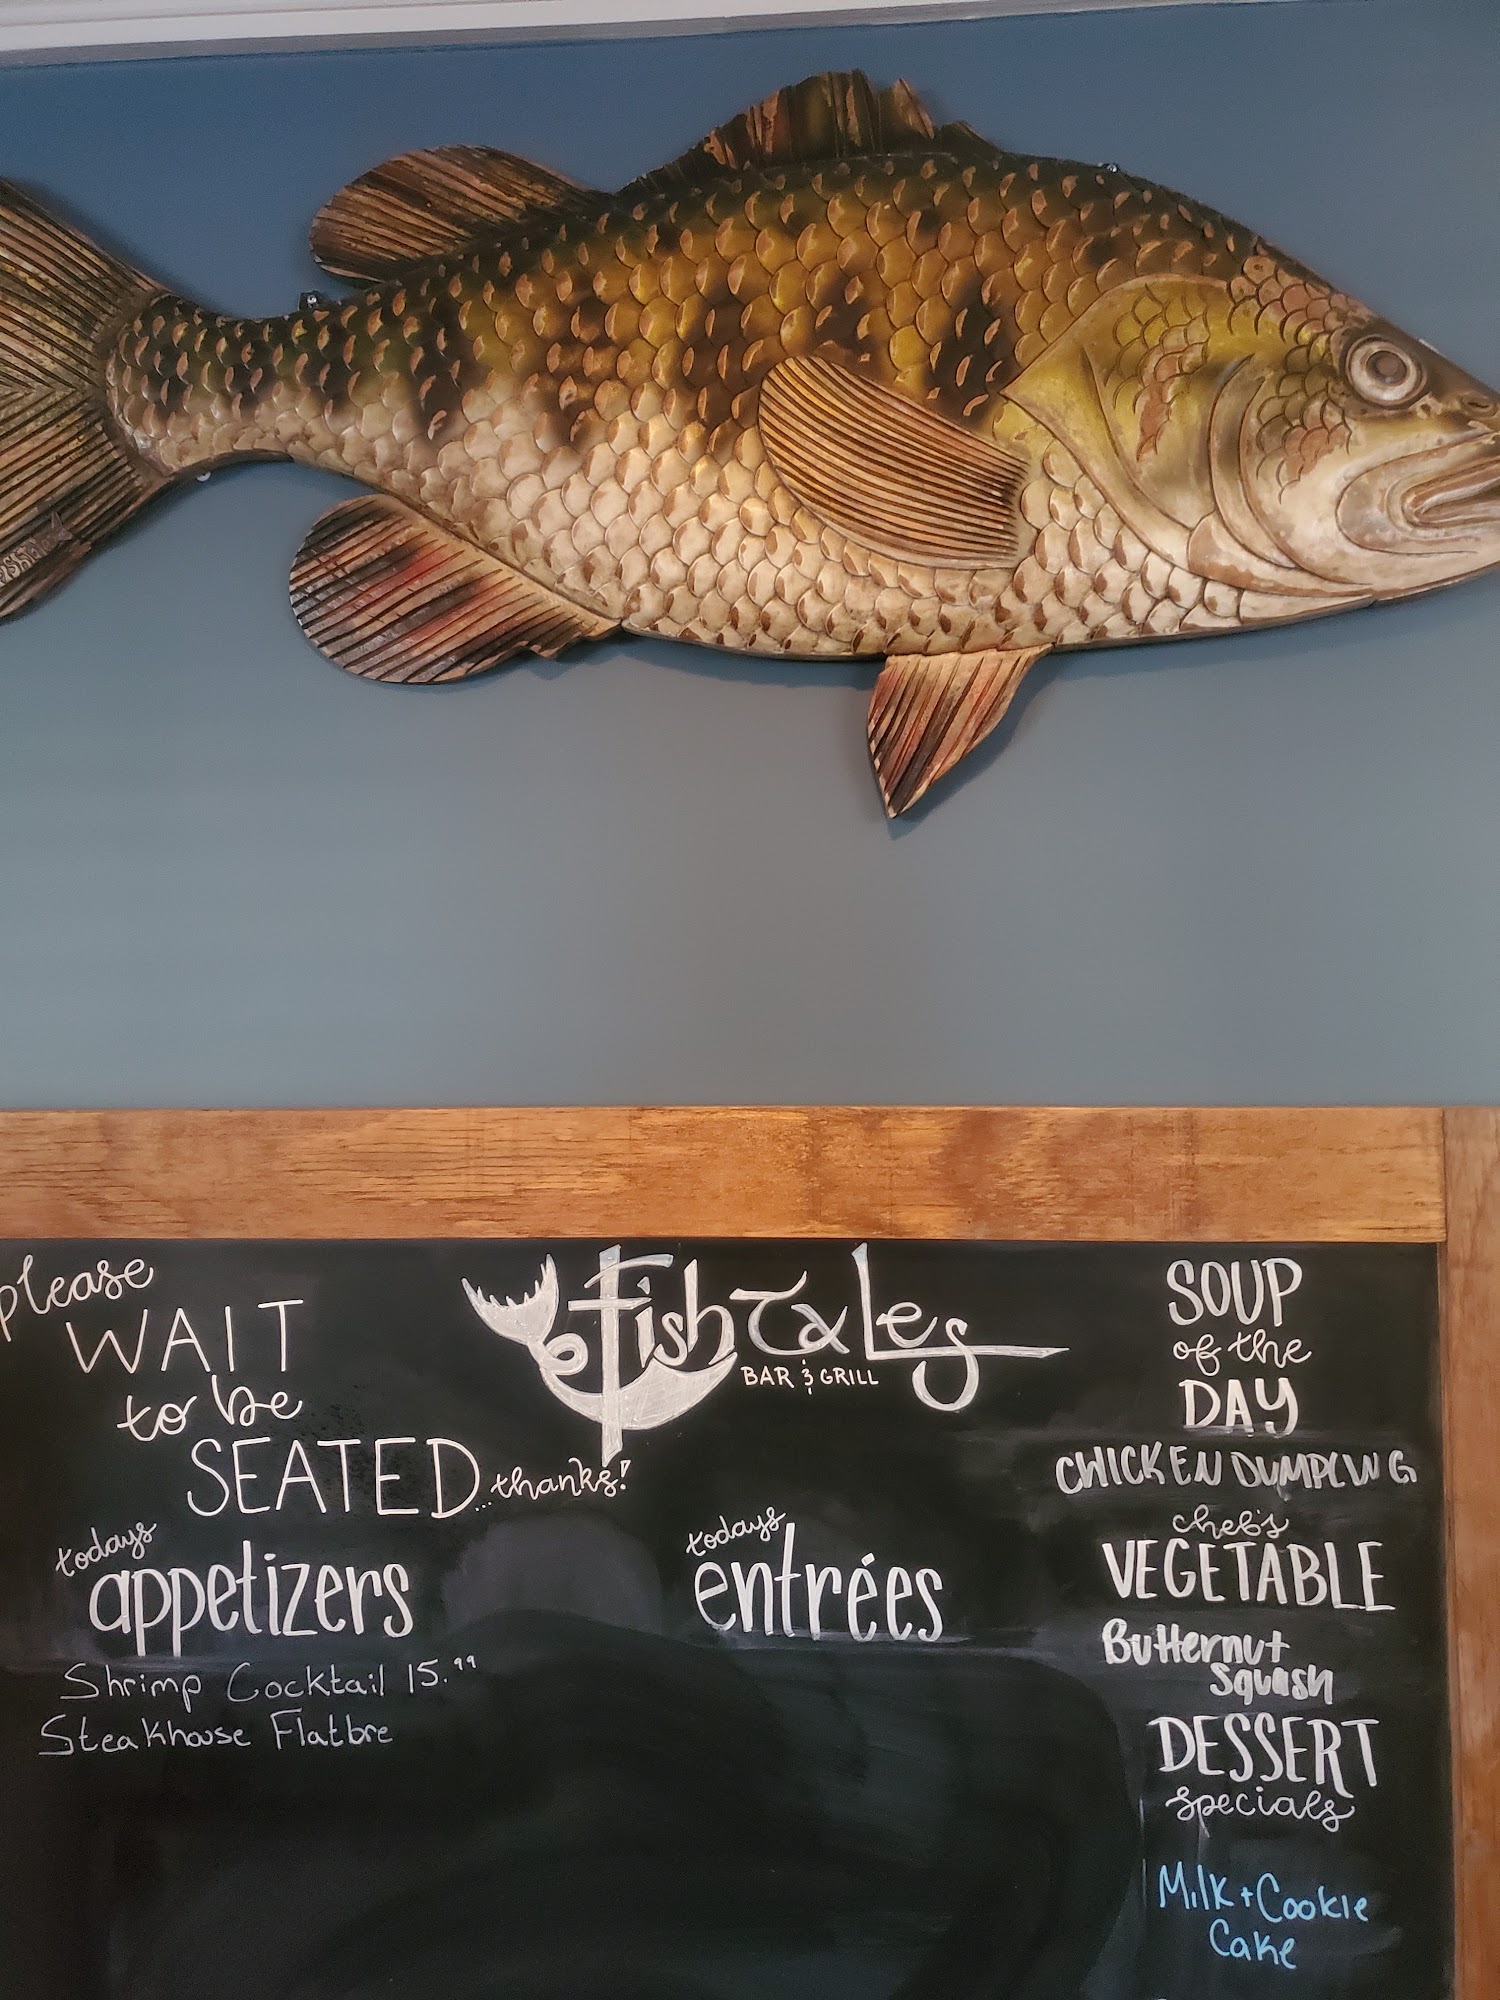 please
WAIT
to be
SEATED...thanks!
Fish Tales
BAR & GRILL
todays
appetizers
Shrimp Cocktail 15.99
Steakhouse Flatbre
todays
entrées
SOUP
of the
DAY
CHICKEN DUMPLING
chef's
VEGETABLE
Butternut
Squash
DESSERT
specials
Milk + Cookie
Cake